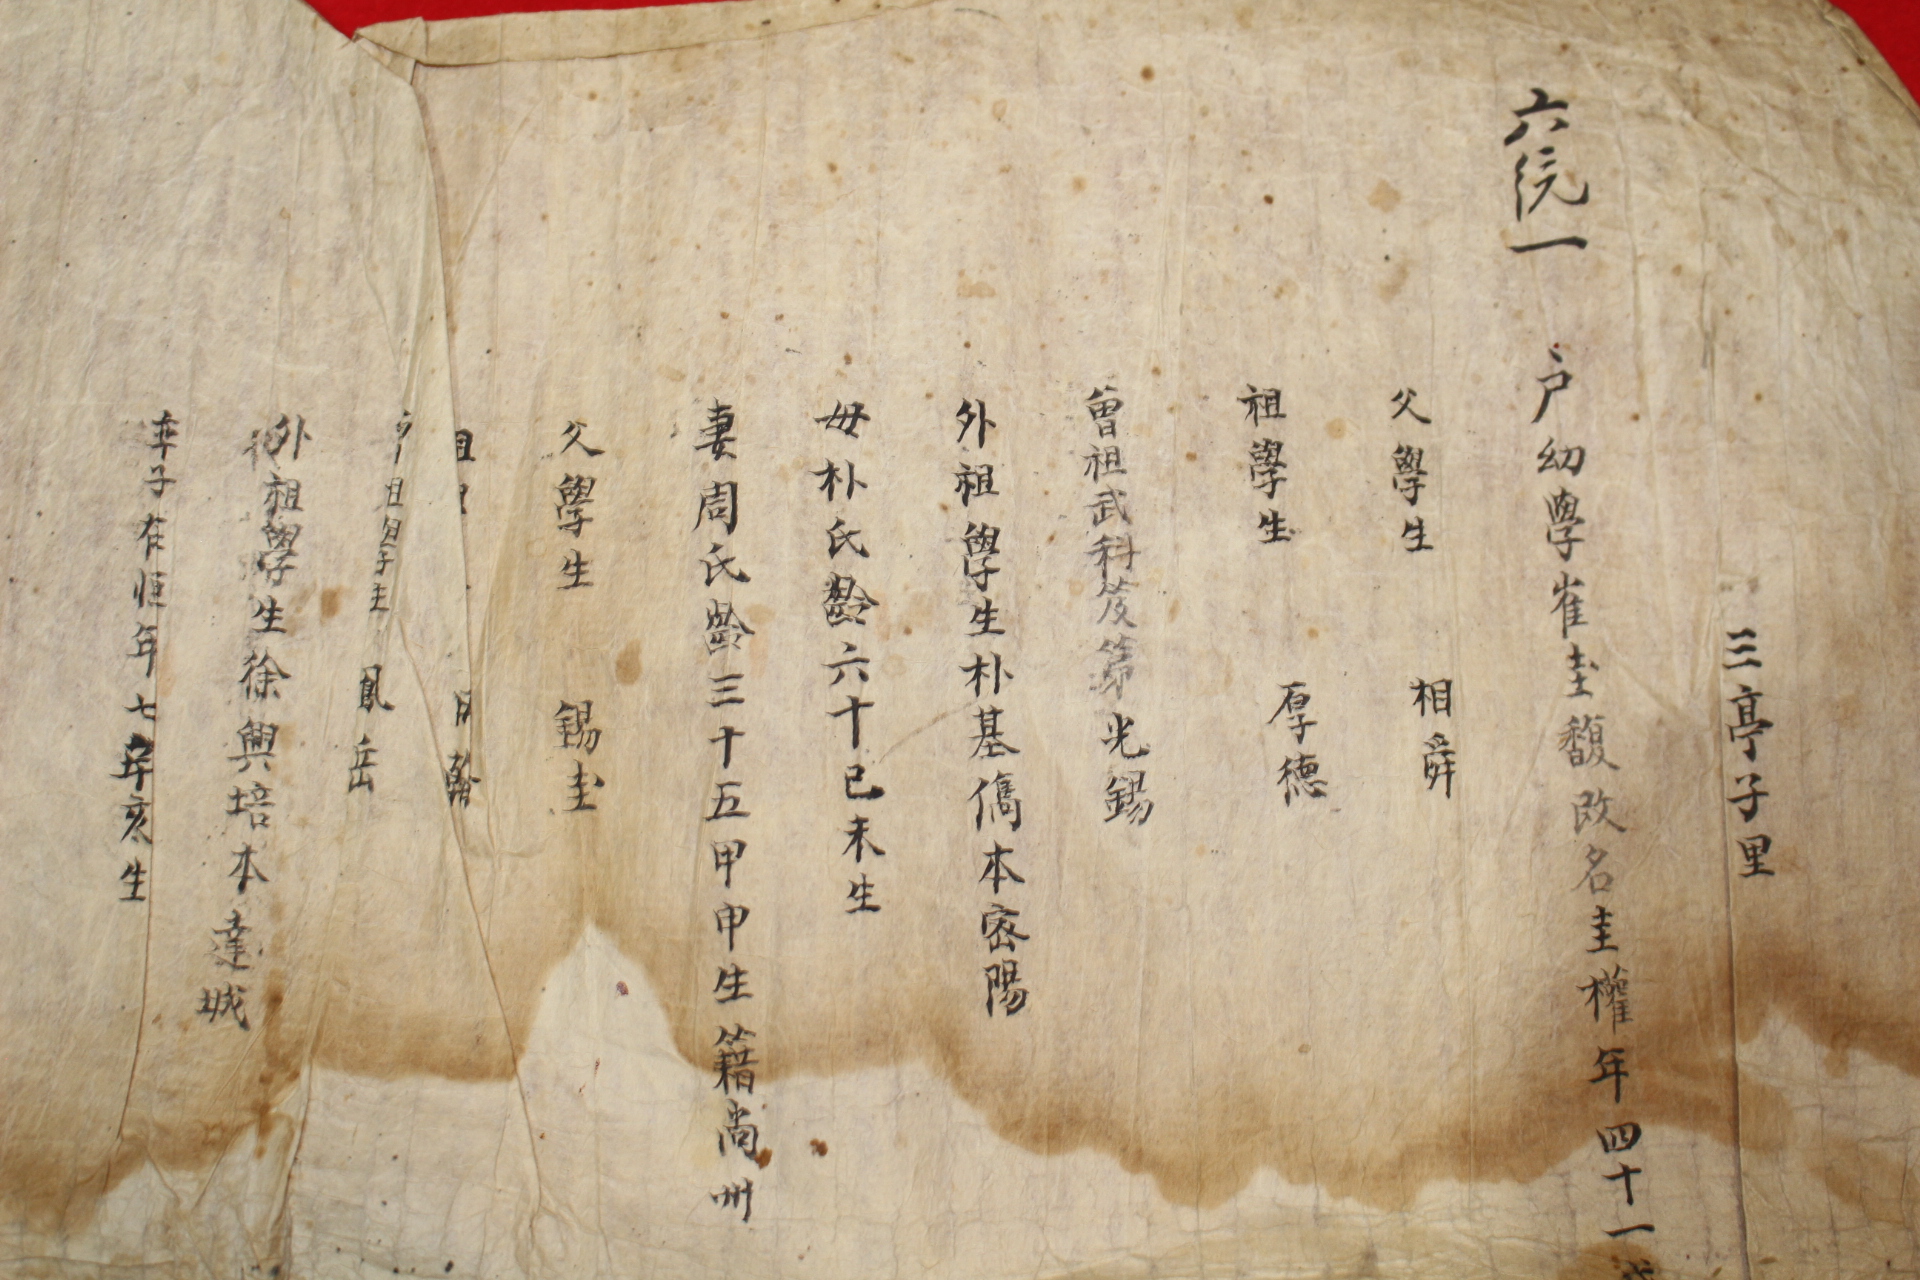 三亭子里
六統一
户幼學崔圭馥改名圭權年四十一
父學生 相舜
祖學生 厚德
曾祖武科及第光錫
外祖學生朴基儁本密陽
母朴氏齡六十己未生
妻周氏齡三十五甲申生籍尚州
父學生 錫圭
祖
祖學生 鳳岳
外祖學生徐興培本達城
率子有恒年七辛亥生